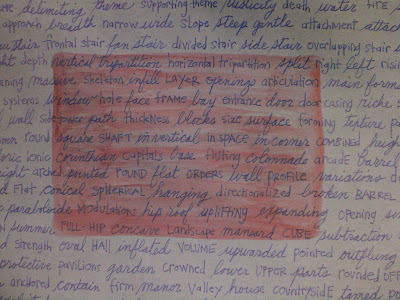 delimiting theme supporting theme rusticity death water fire
approach breadth narrow wide slope steep gentle attachment attac
stair frontal stair fan stair divided stair side stair overlapping stair
depth vertical tripartition horizontal tripartition split right left risi
ening massive skeleton infill LAYER openings articulation main form
systems window hole face FRAME bay entrance door door casing niche
wall side power path thickness blocks size surface forming texture pa
round square SHAFT in vertical in SPACE in corner COMBINED heigh
ionic corinthian capitals base fluting colonnade arcade barrel
arched pointed ROUND flat ORDERS wall PROFILE variations d
d FLAT conical SPHERICAL hanging directionalized broken BARREL
paraboloide MODULATION hip roof uplifting expanding opening
summer FULL-HIP concave landscape mansard CUBE subtraction
d strength oval HALL inflated VOLUME upwarded pointed outflying
protective pavilions garden crowned lower UPPER parts rounded OFF
anchored contain firm manor valley house countryside tamed